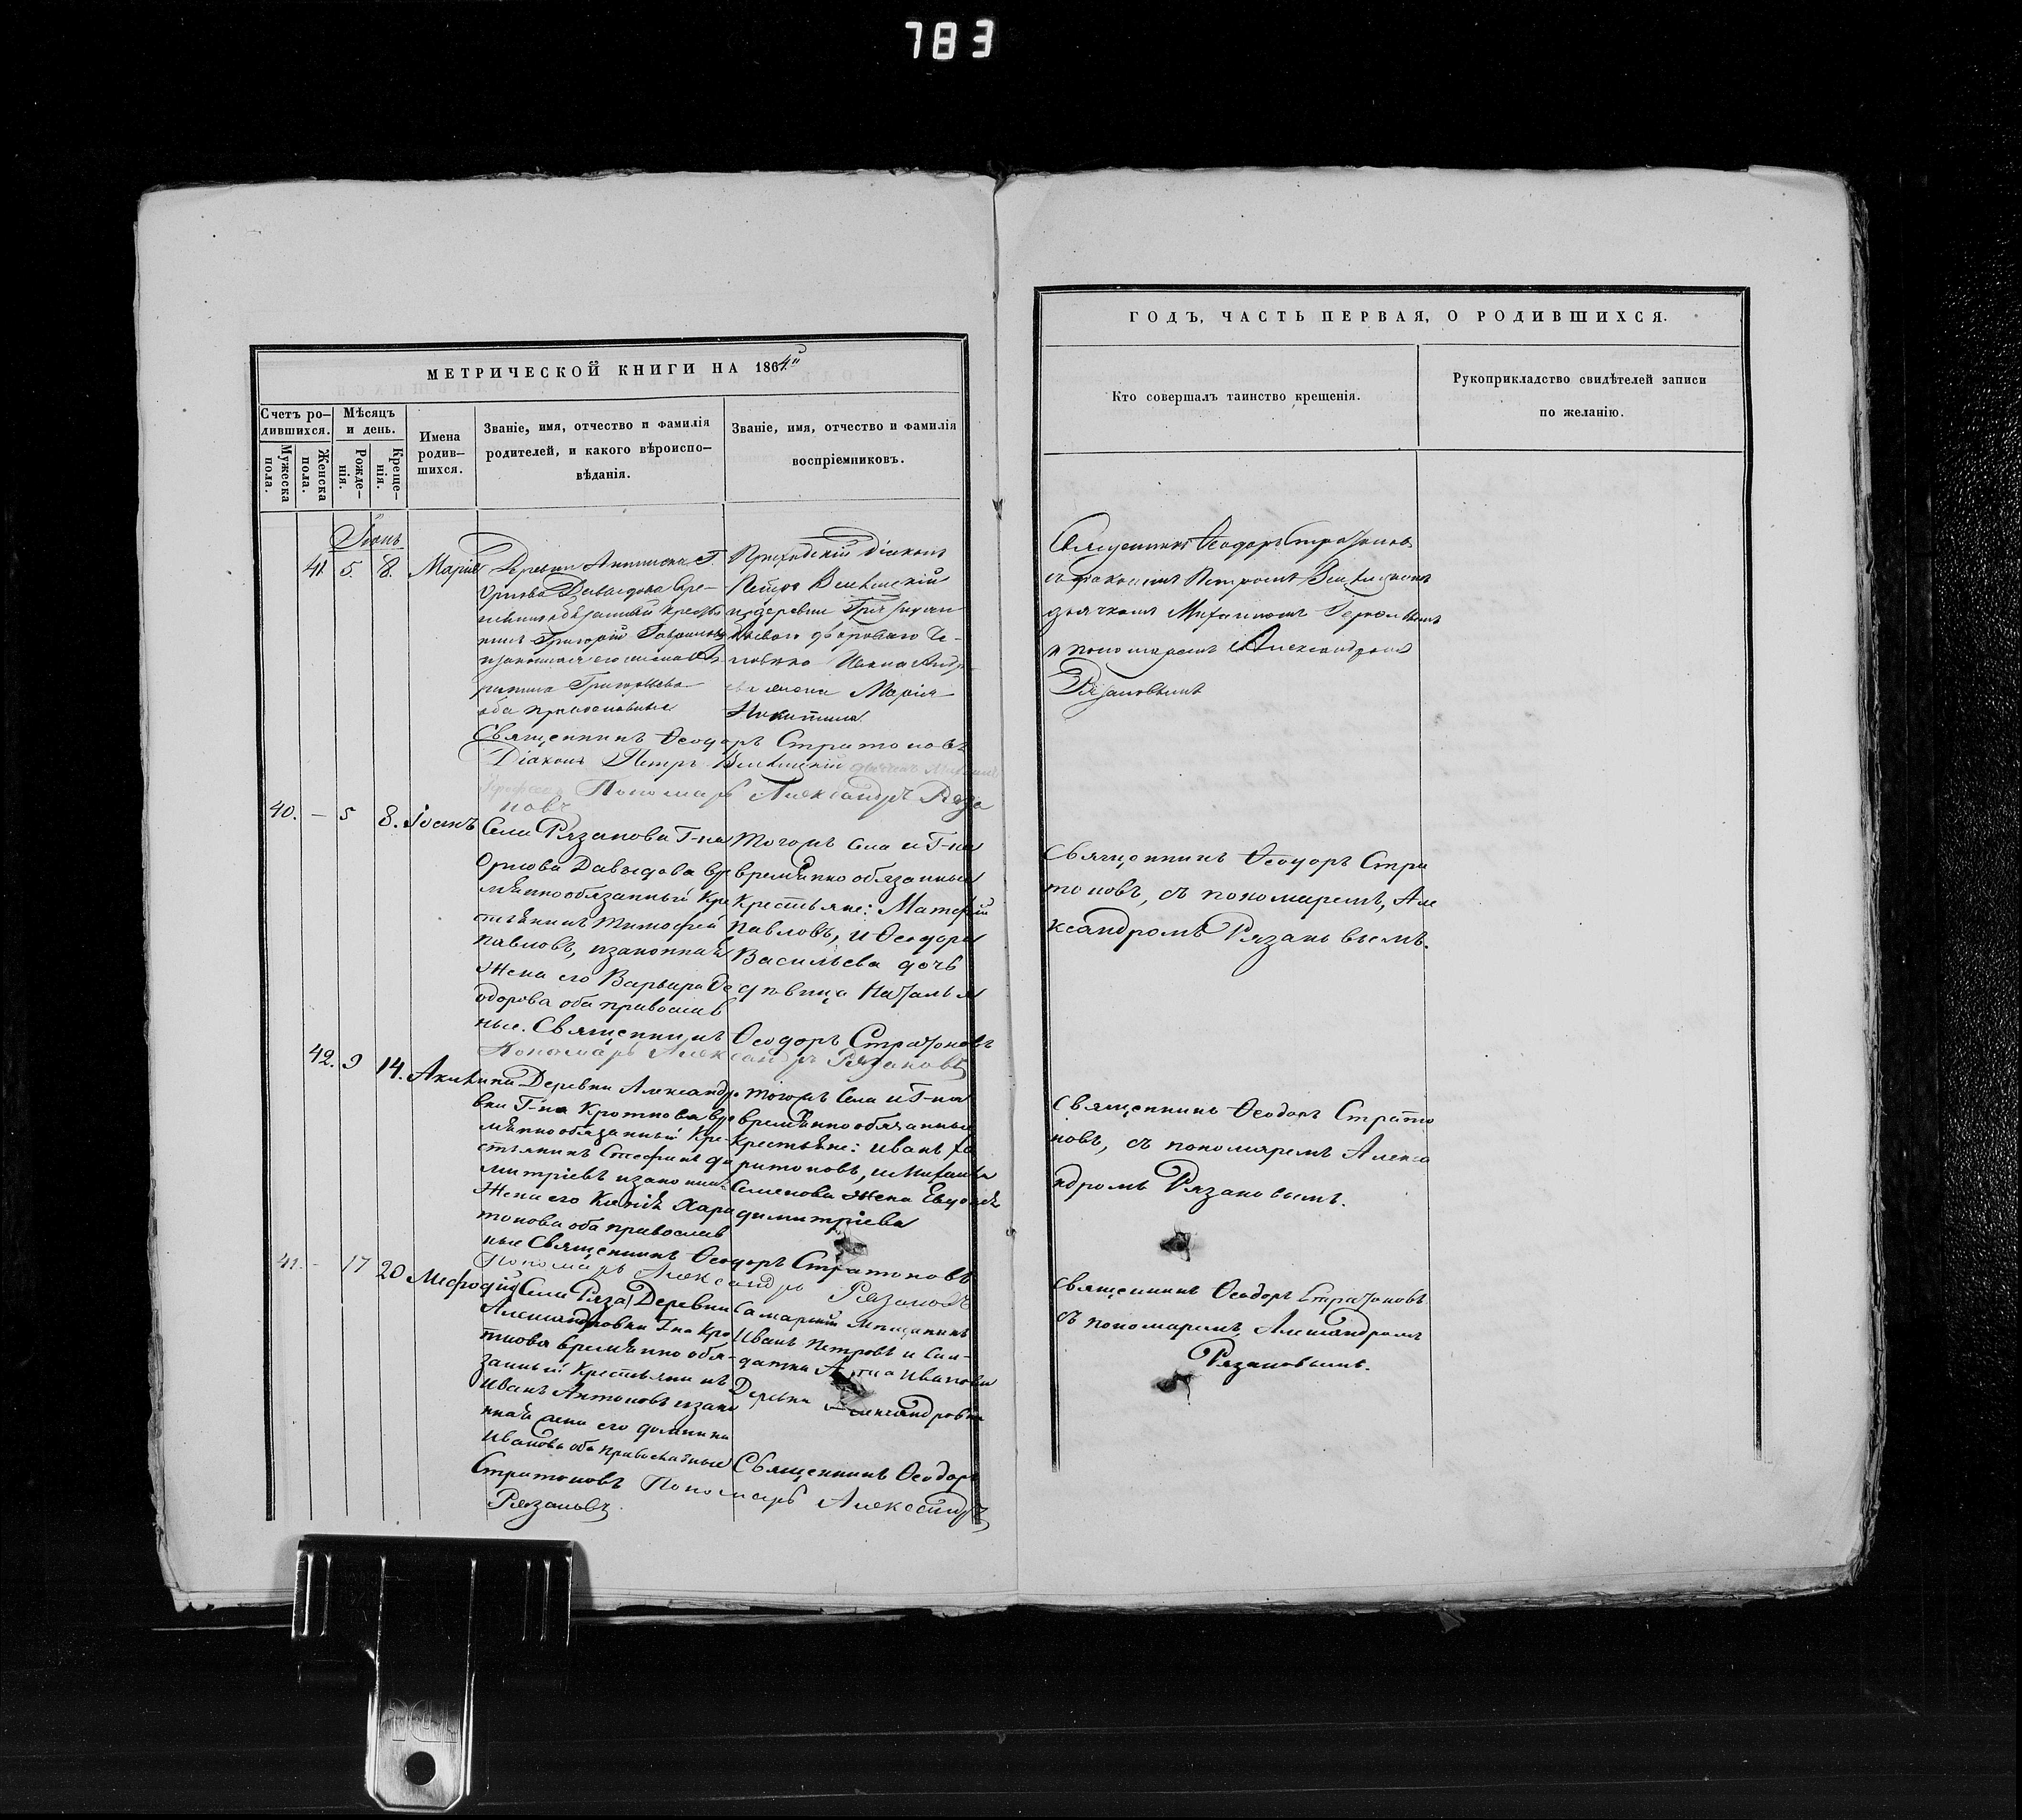 783
МЕТРИЧЕСКОЙ КНИГИ НА 1864й
Счетъ ро-
дившихся.
Мужеска
пола.
Женска
пола.
Мѣсяцъ
и день.
Рожде-
нія.
Креще-
нія.
Имена
родив-
шихся.
Званіе, имя, отчество и фамилія
родителей, и какого вѣроиспо-
вѣданія.
Званіе, имя, отчество и фамилія
воспріемниковъ.
Іюнь
41. 5. 8. Марія
Деревни Г.
Орлова Давыдова вре-
меннообязанный кресть
нинъ Григорій
изаконная его жена
Григорьева
оба православные
Приходскій діаконъ
Петръ
и деревни
двороваго Че-
ловека Ивана Андре
ева жена Марія
Никитина
Священникъ Ѳеодоръ Стратоновъ
Діаконъ Петръ
Пономарь Александръ Ряза
новъ
40. — 5 8. Іоанъ
Села Рязанова Г-на
Орлова Давыдова вре
мѣннообязанный Кре
стьянинъ Тимофей
павловъ, изаконная
Жена его Варвара Ѳе
одорова оба православ
ные. Священникъ Ѳеодоръ Стратоновъ
Пономарь Александръ Рязановъ
Тогожъ Села и Г-на
времѣнно обязанные
Крестьяне: Матфѣй
Павловъ, и Ѳеодора
Васильева дочь
дѣвица Наталья
42. 9 14. Акилина
Деревни Александро
вки Г-на Кроткова вре
мѣннообязанный Кре-
стьянинъ Стефанъ ди
митріевъ изаконная
Жена его Хари
тонова оба православ
ные Священникъ Ѳеодоръ Стратоновъ
Пономарь Александръ Рязановъ
тогожъ Села и Г-на
времѣннообязанные
крестьяне: иванъ ха
ритоновъ, и Михаила
Семенова Жена Евдокія
димитріева
41. - 17 20 Меѳодій
(Села Ряза) Деревни
Александровки Г-на Кро
ткова времѣнно обя-
занный Крестьянинъ
Иванъ Антоновъ изако
нная жена его домника
Иванова оба православные
Самарскій мѣщанинъ
Иванъ Петровъ и Сол-
датка Анна Иванова
Деревни Александровки
Священникъ Ѳеодоръ
Стратоновъ Пономарь Александръ
Рязановъ.
ГОДЪ, ЧАСТЬ ПЕРВАЯ, О РОДИВШИХСЯ.
Кто совершалъ таинство крещенія.
Рукоприкладство свидѣтелей записи
по желанію.
Священникъ Ѳеодоръ Стратоновъ
съ діакономъ Петромъ
дьячкомъ Михаиломъ
и пономаремъ Александромъ
Рязановымъ
Священникъ Ѳеодоръ Стра
тоновъ, съ пономаремъ, Але
ксандромъ Рязановымъ.
Священникъ Ѳеодоръ Страто
новъ, съ пономаремъ Алекса
ндромъ Рязановымъ.
Священникъ Ѳеодоръ Стратоновъ
съ пономаремъ, Александромъ
Рязановымъ.